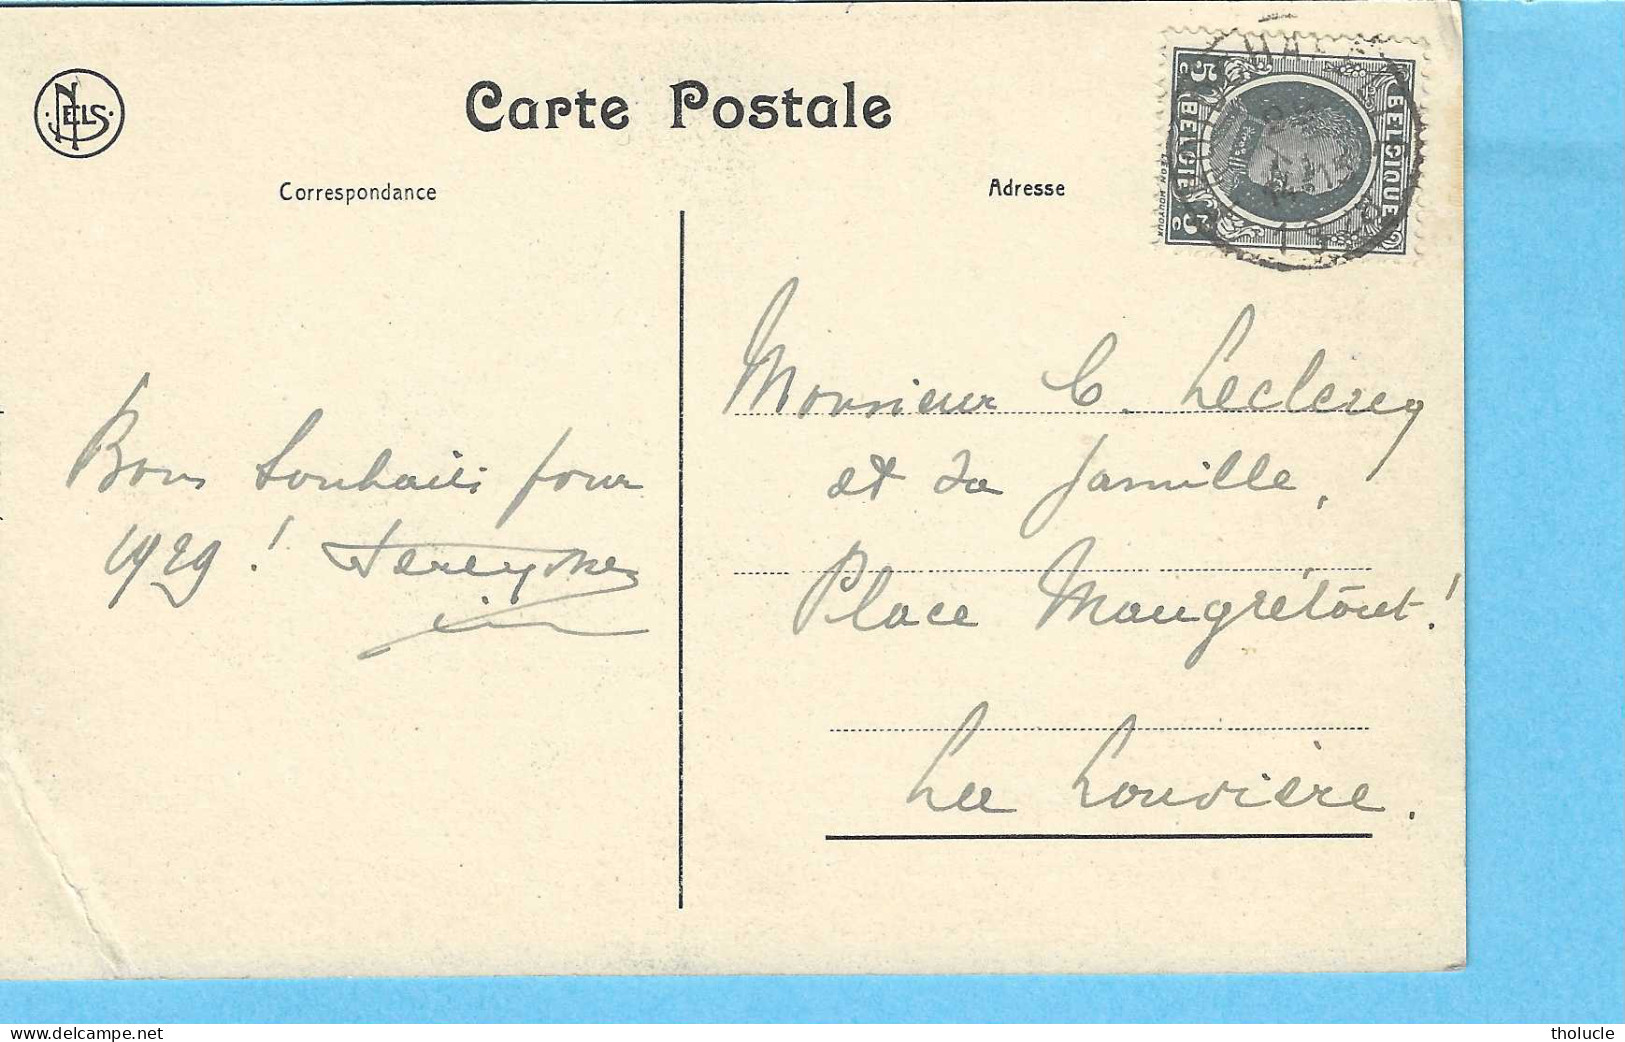 NELS
Carte Postale
Correspondance
Adresse
5 c BELGIE 5 c
BELGIQUE
1928
Bons Souhaits pour
1929 !
Monsieur C. Leclercq
et Sa famille,
Place Maugrétout !
La Louvière.
www.delcampe.net
tholucle